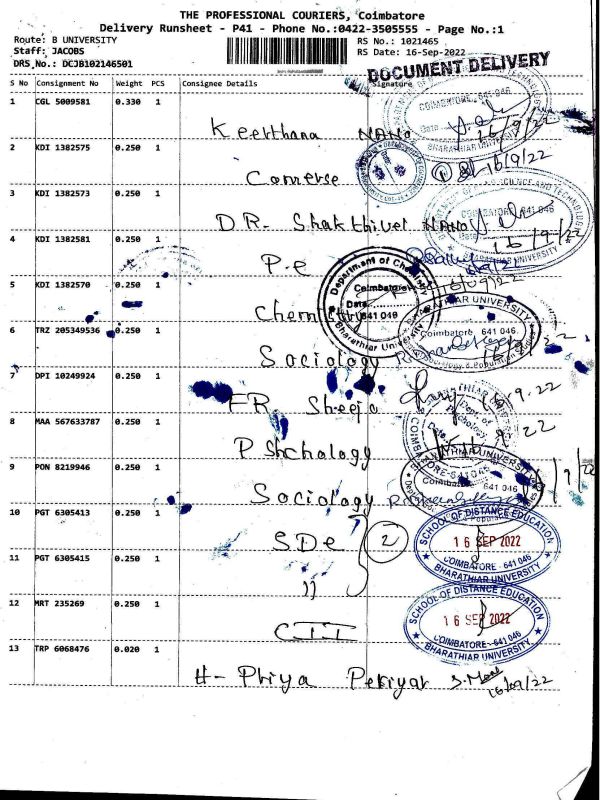 THE PROFESSIONAL COURIERS, Coimbatore
Delivery Runsheet - P41 - Phone No.:0422-3505555 - Page No.:1
Route: B UNIVERSITY
Staff: JACOBS
DRS No.: DCJB102146501
RS No.: 1021465
RS Date: 16-Sep-2022
DOCUMENT DELIVERY
S No Consignment No Weight PCS Consignee Details Signature
1 CGL 5009581 0.330 1
Keerthana NANO 16/9/22
COIMBATORE, 641 046
Date
BHARATHIAR UNIVERSITY
2 KDI 1382575 0.250 1
Comerse 16/9/22
3 KDI 1382573 0.250 1
DR. Shakthivel NANO 16/9/22
SCIENCE AND TECHNOLOGY
641 046
BHARATHIAR UNIVERSITY
4 KDI 1382581 0.250 1
P.e
5 KDI 1382570 0.250 1
Department of Chemistry
Coimbatore
Date
641 046
Bharathiar University
6 TRZ 205349536 0.250 1
Sociology
BHARATHIAR UNIVERSITY
Coimbatore 641 046
7 DPI 10249924 0.250 1
FR. Sheeja 16.9.22
8 MAA 567633787 0.250 1
PShchology
Dept. of Psychology
Date
BHARATHIAR UNIVERSITY
9 PON 8219946 0.250 1
Sociology
Coimbatore 641 046
10 PGT 6305413 0.250 1
SDe 2
SCHOOL OF DISTANCE EDUCATION
16 SEP 2022
COIMBATORE - 641 046
BHARATHIAR UNIVERSITY
11 PGT 6305415 0.250 1
"
12 MRT 235269 0.250 1
CII
SCHOOL OF DISTANCE EDUCATION
16 SEP 2022
COIMBATORE - 641 046
BHARATHIAR UNIVERSITY
13 TRP 6068476 0.020 1
H- Priya Periyar 16/09/22